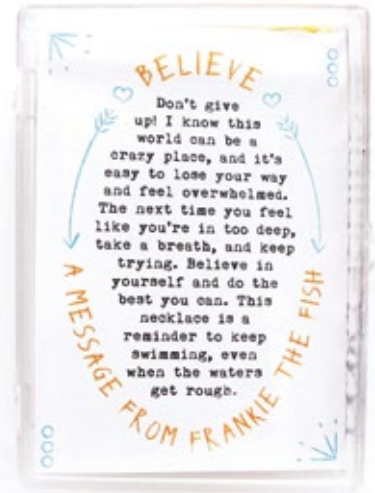 BELIEVE
Don't give
up! I know this
world can be a
crazy place, and it's
easy to lose your way
and feel overwhelmed.
The next time you feel
like you're in too deep,
take a breath, and keep
trying. Believe in
yourself and do the
best you can. This
necklace is a
reminder to keep
swimming, even
when the waters
get rough.
A MESSAGE FROM FRANKIE THE FISH